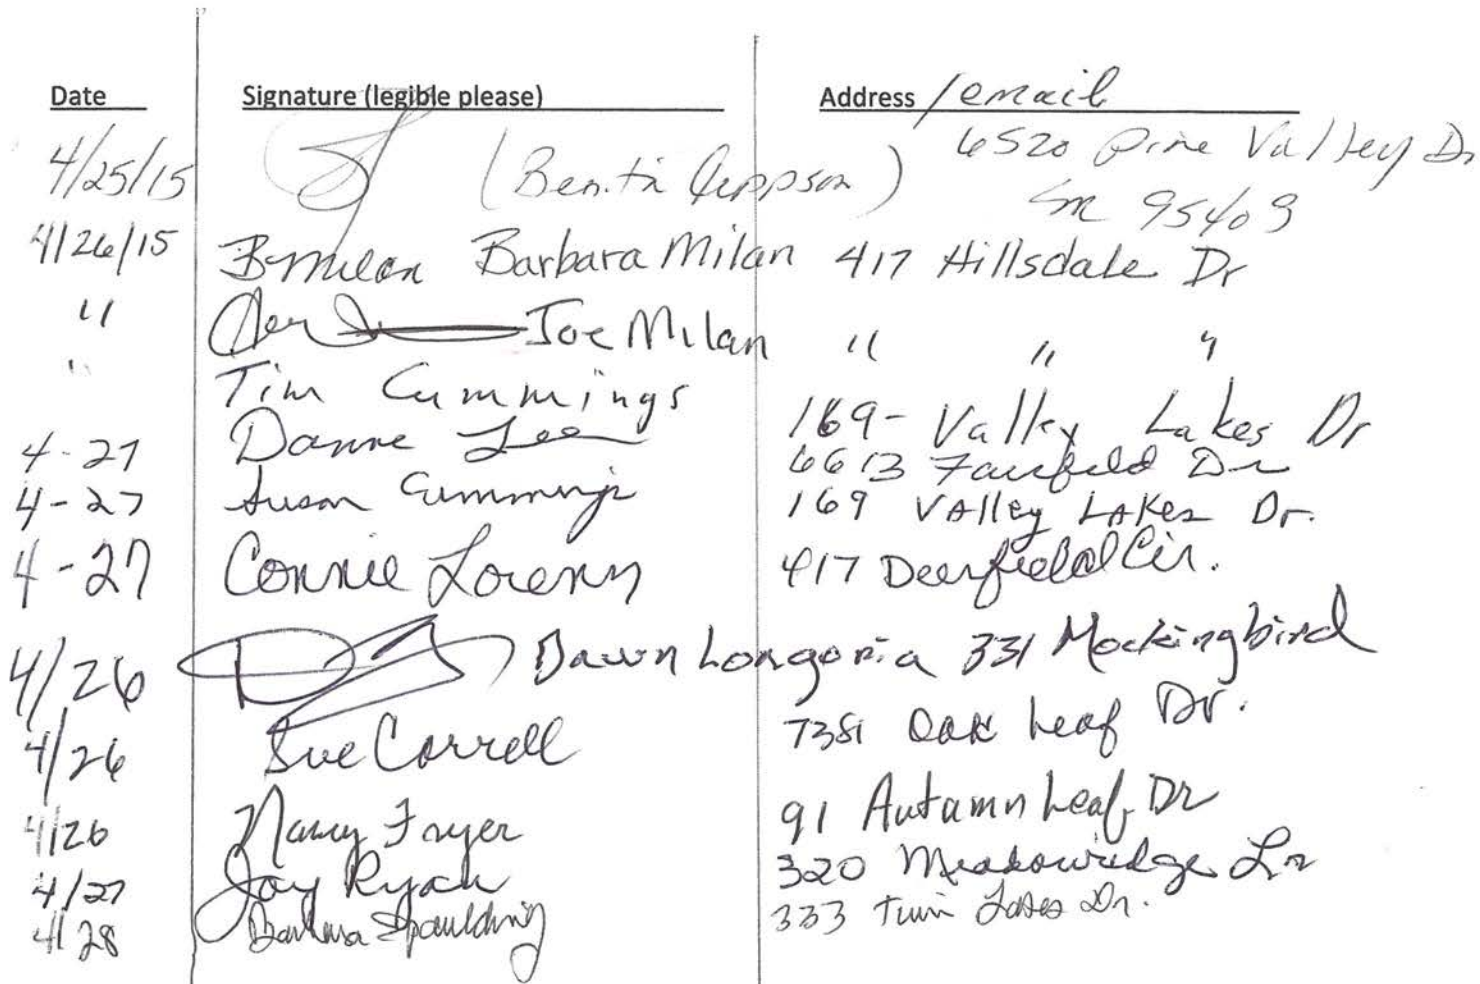 Date Signature (legible please) Address /email
4/25/15 (Benita Jeppson) 6520 Pine Valley Dr
SR 95409
4/26/15 B Milan Barbara Milan 417 Hillsdale Dr
" Joe Milan " " "
" Tim Cummings 169- Valley Lakes Dr
4-27 Danne Lee 6613 Fairfield Dr
4-27 Susan Cummings 169 Valley Lakes Dr.
4-27 Connie Lorenz 417 Deerfield Cir.
4/26 Dawn Longoria 331 Mockingbird
4/26 Sue Carrell 7381 Oak Leaf Dr.
4/26 Nancy Fryer 91 Autumn Leaf Dr
4/27 Joy Ryan 320 Meadowridge Ln
4/28 Barbara Spaulding 333 Twin Lakes Dr.